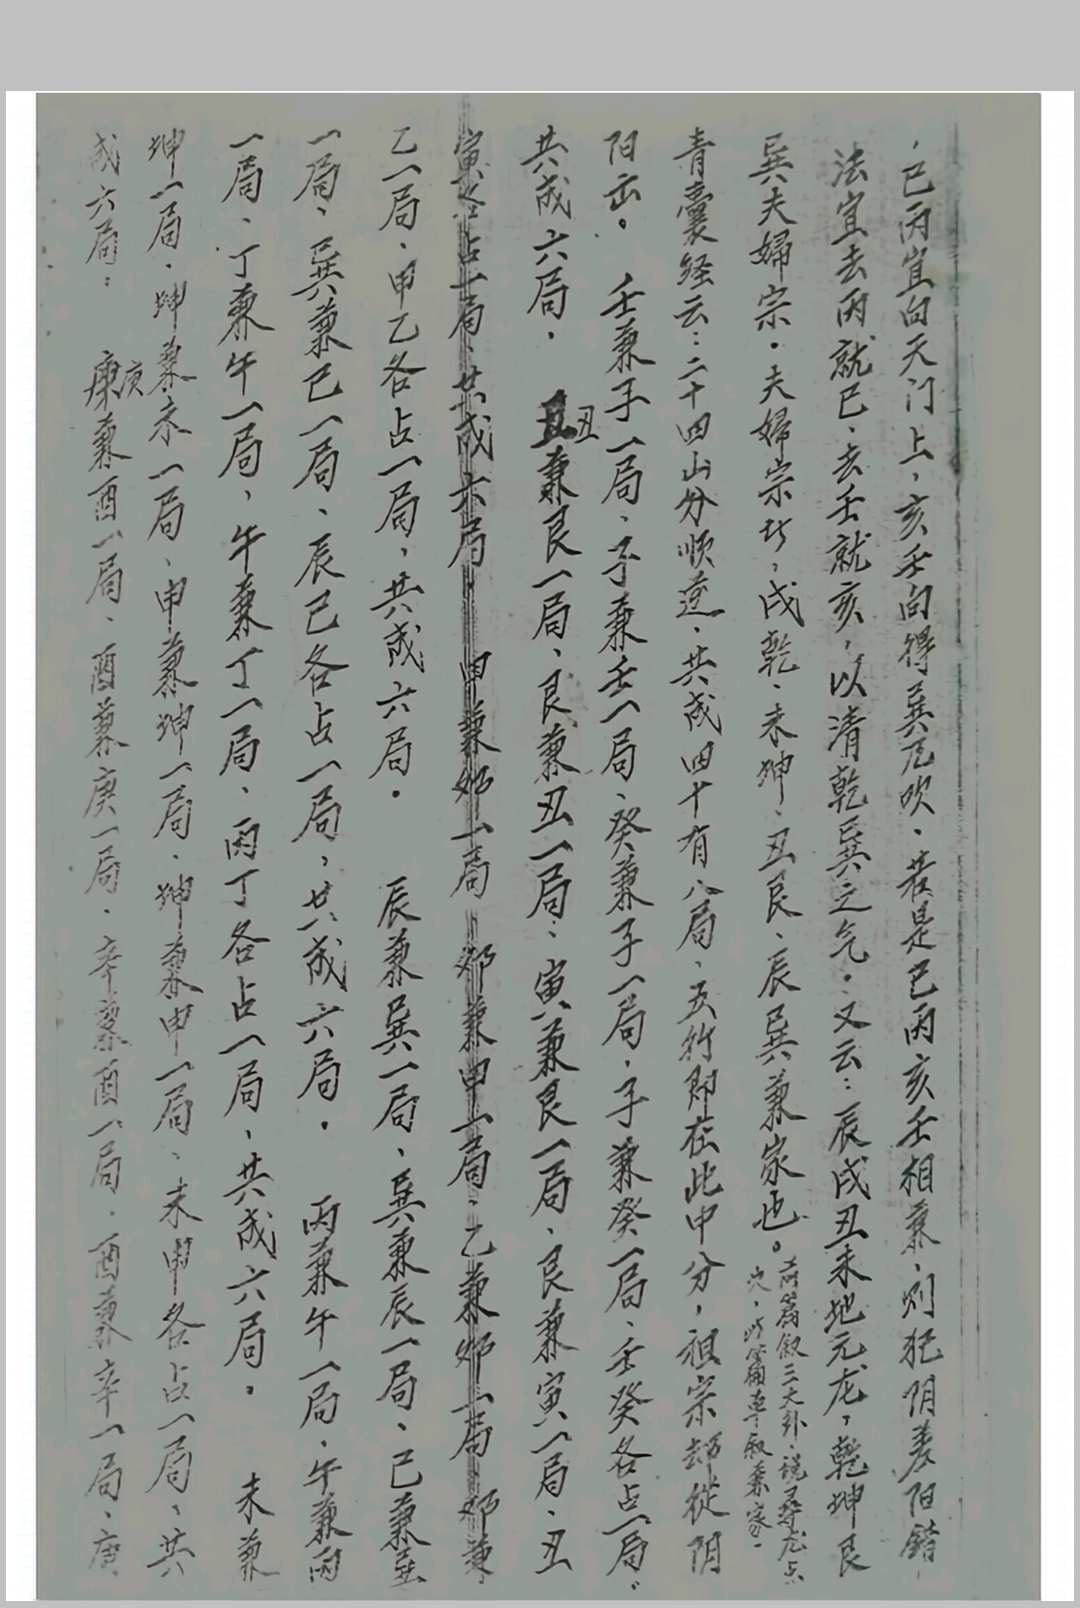 巳丙宜向天门上，亥壬向得巽风吹。若是巳丙亥壬相兼，则犯阴差阳错，
法宜去丙就巳、去壬就亥，以清乾巽之气。又云：辰戌丑未地元龙，乾坤艮
巽夫婦宗。夫婦宗者，戌乾、未坤、丑艮、辰巽兼家也。前篇叙三大卦，说尋龙点
穴，此篇專叙兼家。
青囊经云：二十四山分顺逆，共成四十有八局，五行即在此中分，祖宗却從阴
阳出。 壬兼子一局、子兼壬一局、癸兼子一局，子兼癸一局、壬癸各占一局，
共成六局。 丑兼艮一局、艮兼丑一局、寅兼艮一局、艮兼寅一局、丑
寅各占一局、共成六局 甲兼卯一局 卯兼甲一局、乙兼卯一局 卯兼
乙一局、甲乙各占一局，共成六局。 辰兼巽一局、巽兼辰一局、巳兼巽
一局、巽兼巳一局、辰巳各占一局，共成六局。 丙兼午一局、午兼丙
一局、丁兼午一局，午兼丁一局、丙丁各占一局，共成六局。 未兼
坤一局、坤兼未一局、申兼坤一局、坤兼申一局、未申各占一局，共
成六局： 庚兼酉一局、酉兼庚一局、辛兼酉一局、酉兼辛一局、庚